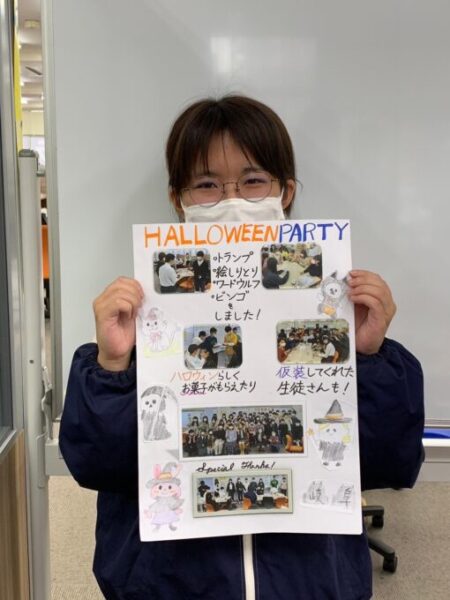 HALLOWEEN PARTY
・トランプ
・絵しりとり
・ワードウルフ
・ビンゴ
を
しました!
ハロウィンらしく
お菓子がもらえたり
仮装してくれた
生徒さんも!
Special Thanks!